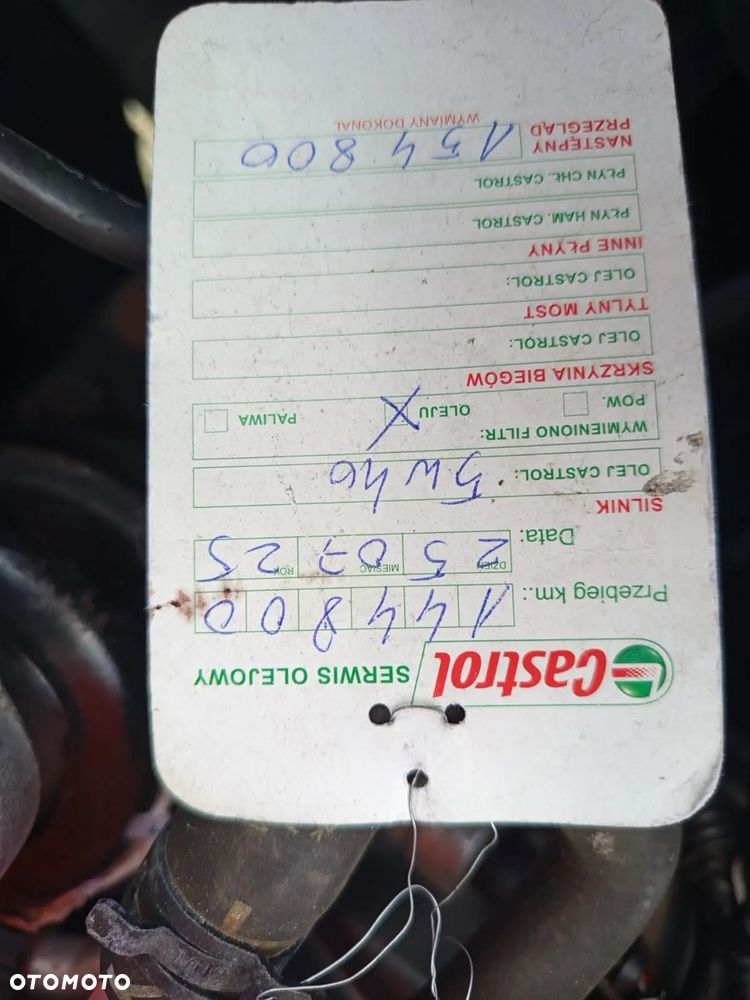 Castrol SERWIS OLEJOWY
Przebieg km.: 144800
Data: DZIEŃ 25 MIESIĄC 07 ROK 25
SILNIK
OLEJ CASTROL: 5W40
WYMIENIONO FILTR:
POW. OLEJU X PALIWA
SKRZYNIA BIEGÓW
OLEJ CASTROL:
TYLNY MOST
OLEJ CASTROL:
INNE PŁYNY
PŁYN HAM. CASTROL
PŁYN CHŁ. CASTROL
NASTĘPNY PRZEGLĄD 154800
WYMIANY DOKONAŁ
OTOMOTO